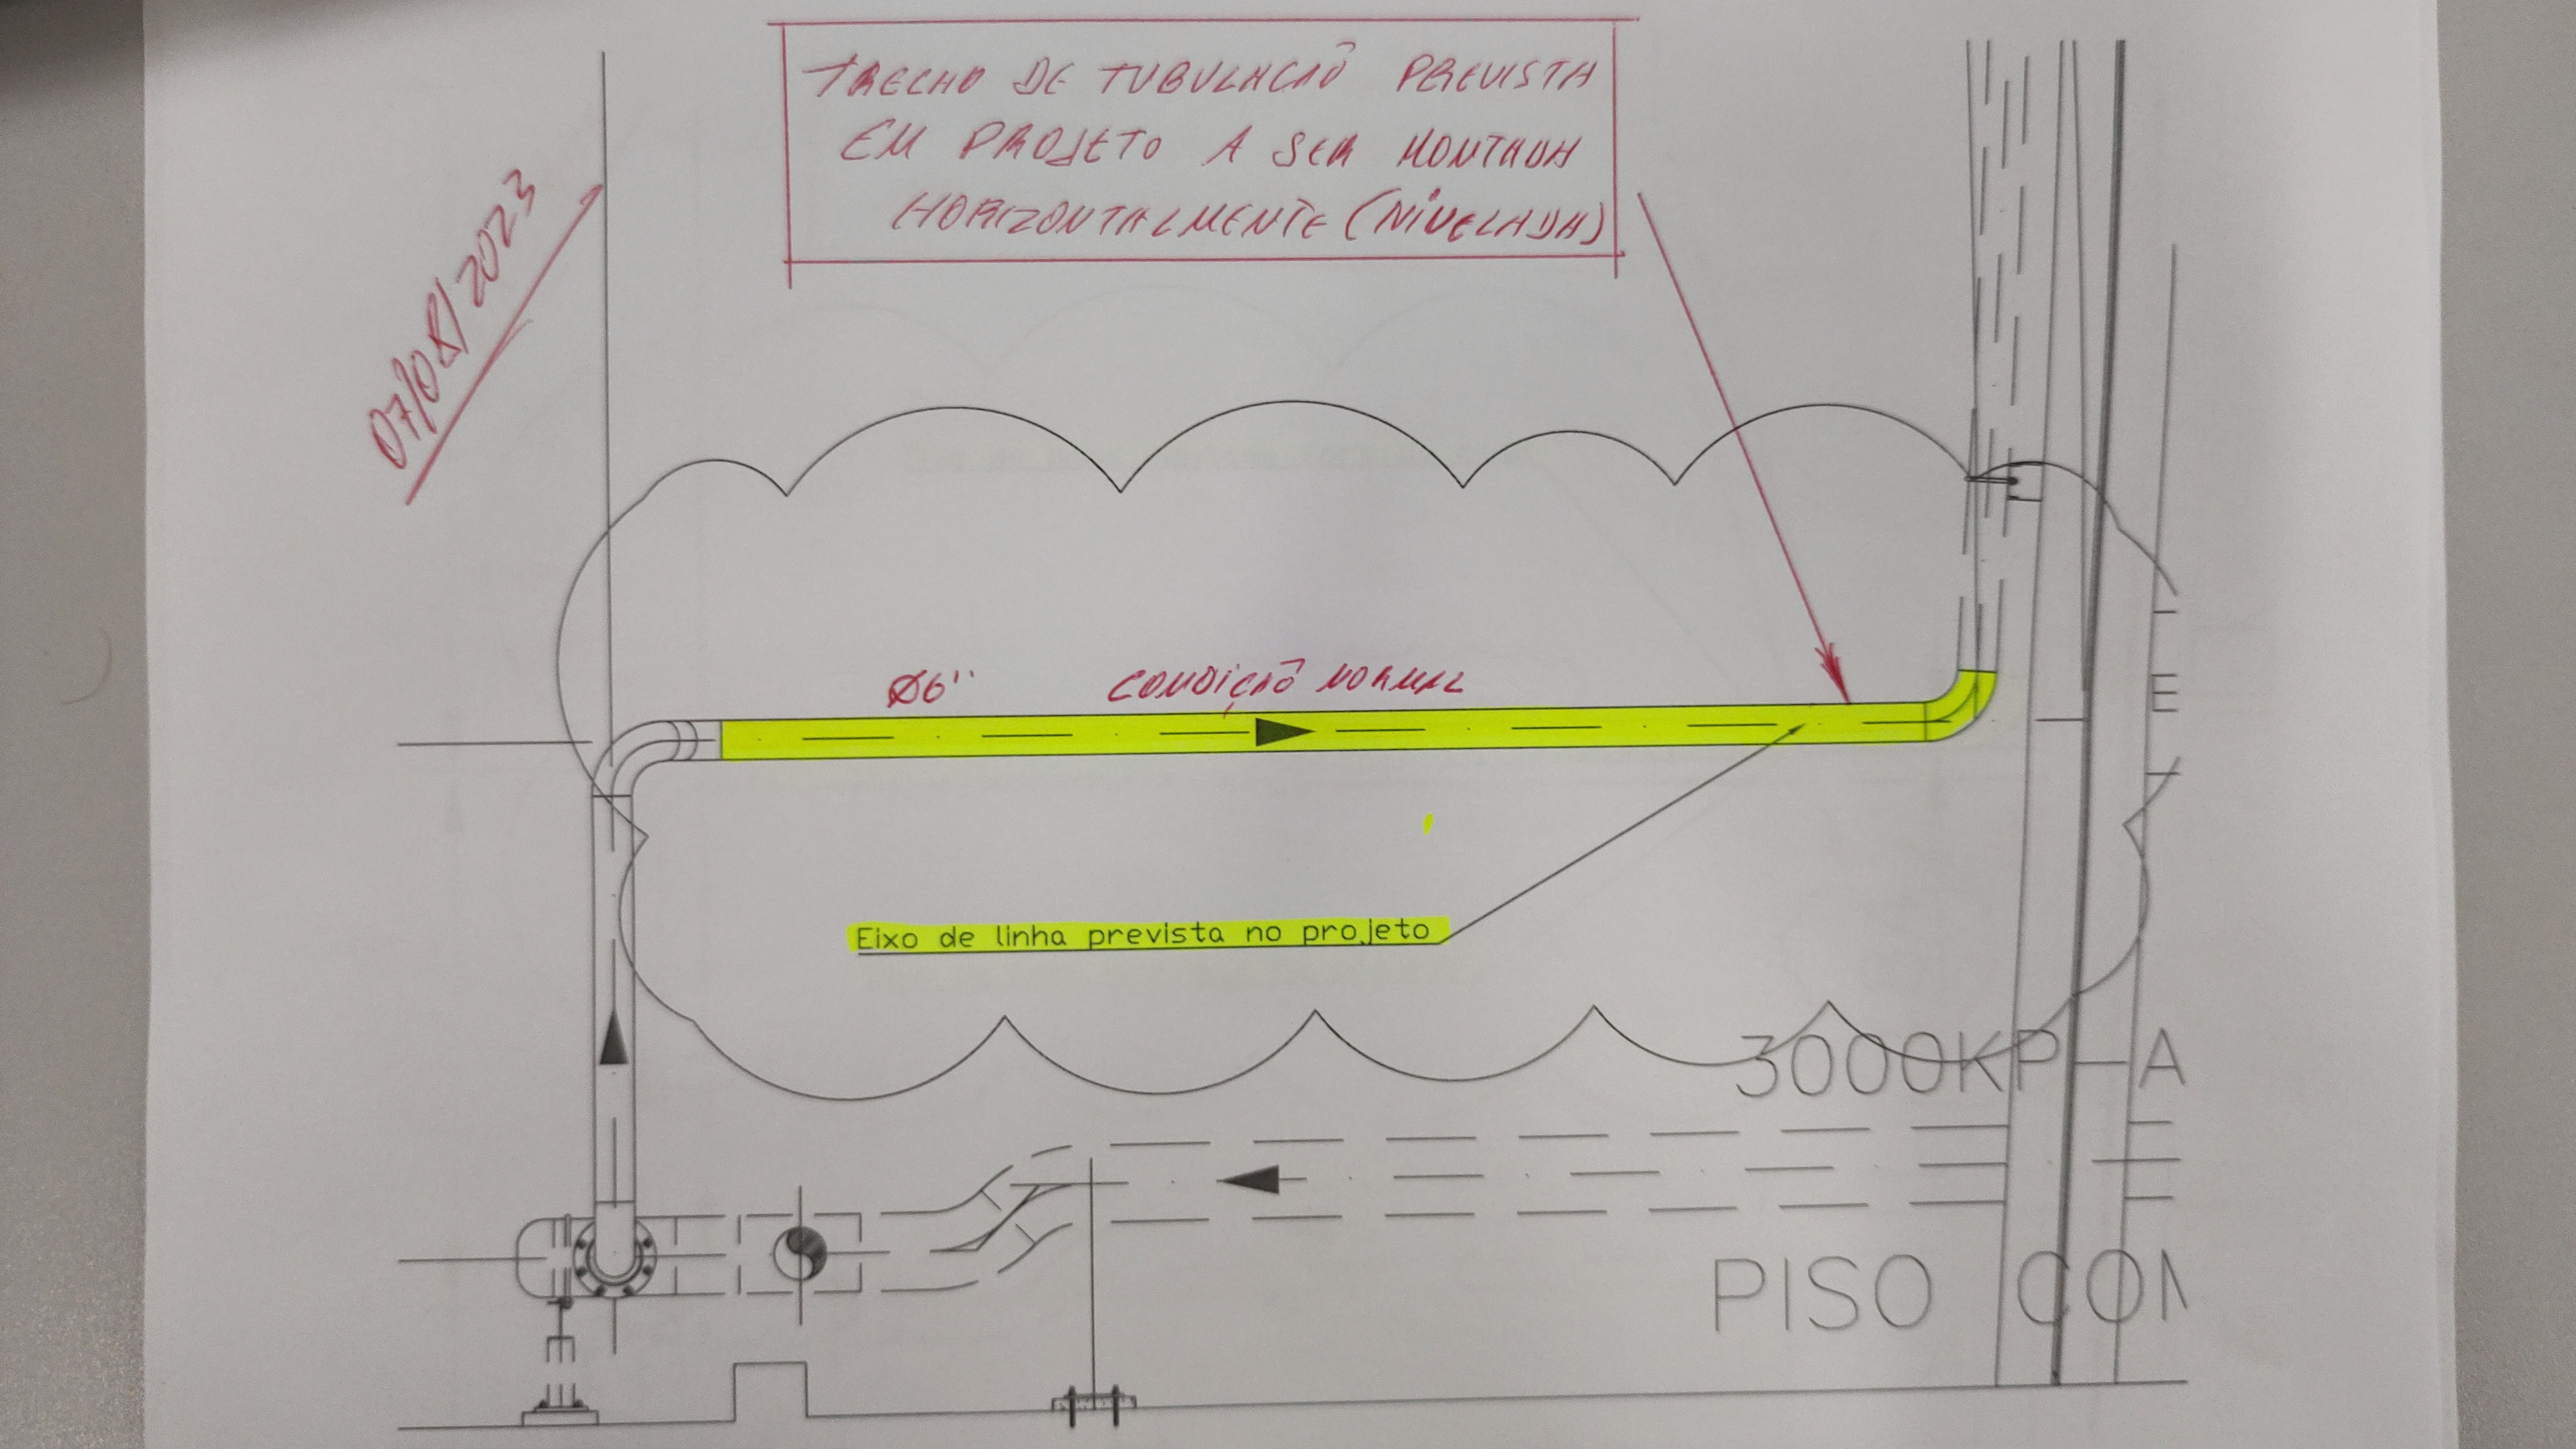 07/08/2023
TRECHO DE TUBULAÇÃO PREVISTA
EM PROJETO A SER MONTADA
HORIZONTALMENTE (NIVELADA)
Ø6"
CONDIÇÃO NORMAL
Eixo de linha prevista no projeto
3000KP-A
PISO CON